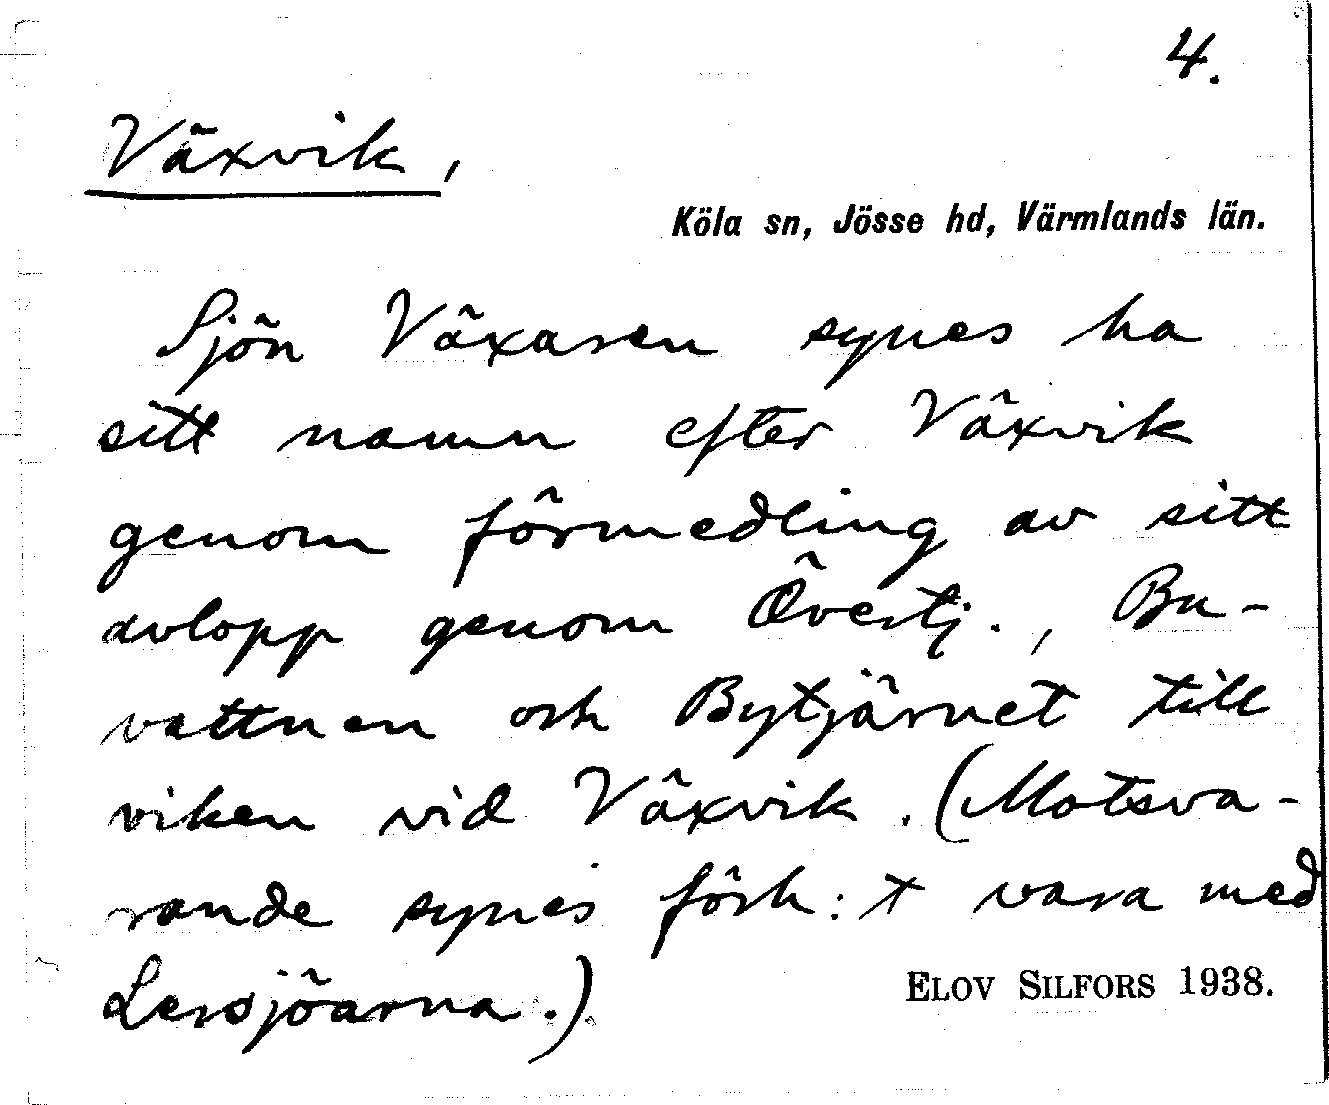 4.
Växvik,
Köla sn, Jösse hd, Värmlands län.
Sjön Växaren synes ha
sitt namn efter Växvik
genom förmedling av sitt
avlopp genom Övertj., Bu-
vattnen och Bytjärnet till
viken vid Växvik. (Motsva-
rande synes förh:t vara med
Lersjöarna.)
ELOV SILFORS 1938.